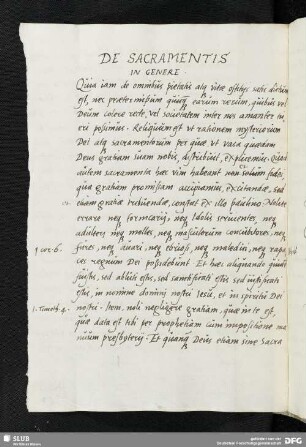 DE SACRAMENTIS
IN GENERE.
Quia iam de omnibus pietatis atq vitæ officijs satis dictum
est, nec prætermissum quicq earum rerum, quibus vel
Deum colere recte, vel societatem inter nos amanter tu
eri possimus. Reliquum est vt rationem mysteriorum
Dei atq sacramentorum per quæ vt vasa quædam
Deus gratiam suam nobis distribuit, explicemus. Quod
autem sacramenta hæc vim habeant non solum fidei,
qua gratiam promissam accipiamus, excitandæ, sed
etiam gratiæ recipiendæ, constat ex illo paulino. Nolite
errare neq fornicarij, neq Idolis seruientes, neq
adulteri, neq molles, neq masculorum concubitores, neq
1 cor. 6. fures, neq auari, neq ebriosi, neq maledici, neq rapa
ces regnum Dei possidebunt. Et hæc aliquando quidē
fuistis, sed abluti estis, sed sanctificati estis sed iustificati
estis, in nomine domini nostri Iesu, et in spiritu Dei
1. Timoth. 4. nostri. Item, noli negligere gratiam, quæ in te est,
quæ data est tibi per prophetiam cum impositione ma
nuum presbyterij. Et quanq Deus etiam sine sacra
SLUB
DFG